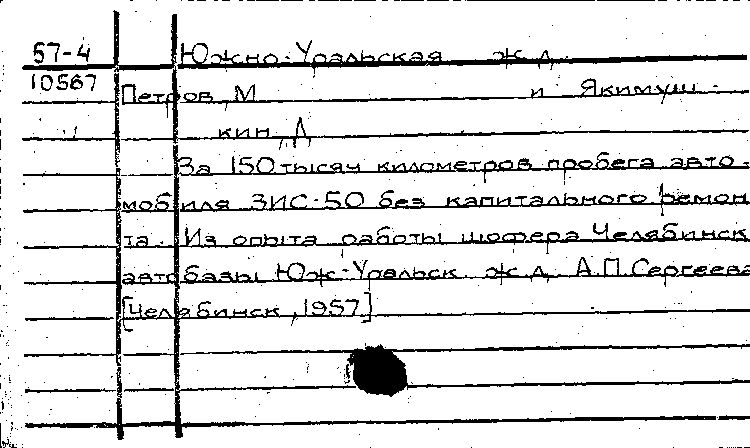 57-4 Южно-Уральская ж.д.
10567 Петров, М и Якимуш-
кин, Д
За 150 тысяч километров пробега авто-
мобиля ЗИС-50 без капитального ремон
та. Из опыта работы шофера Челябинск
автобазы Юж-Уральск ж.д. А.П. Сергеева
[Челябинск, 1957]